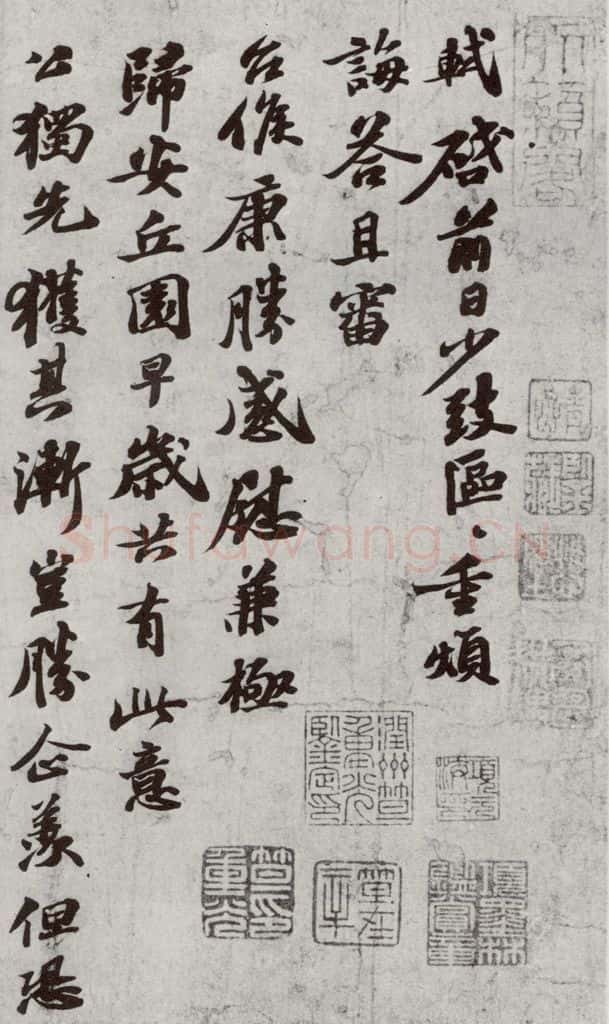 軾啓前日少致區〻重煩
誨答且審
台候康勝感慰兼極
歸安丘園早歲共有此意
公獨先獲其漸豈勝企羨但恐
Shufawang.CN